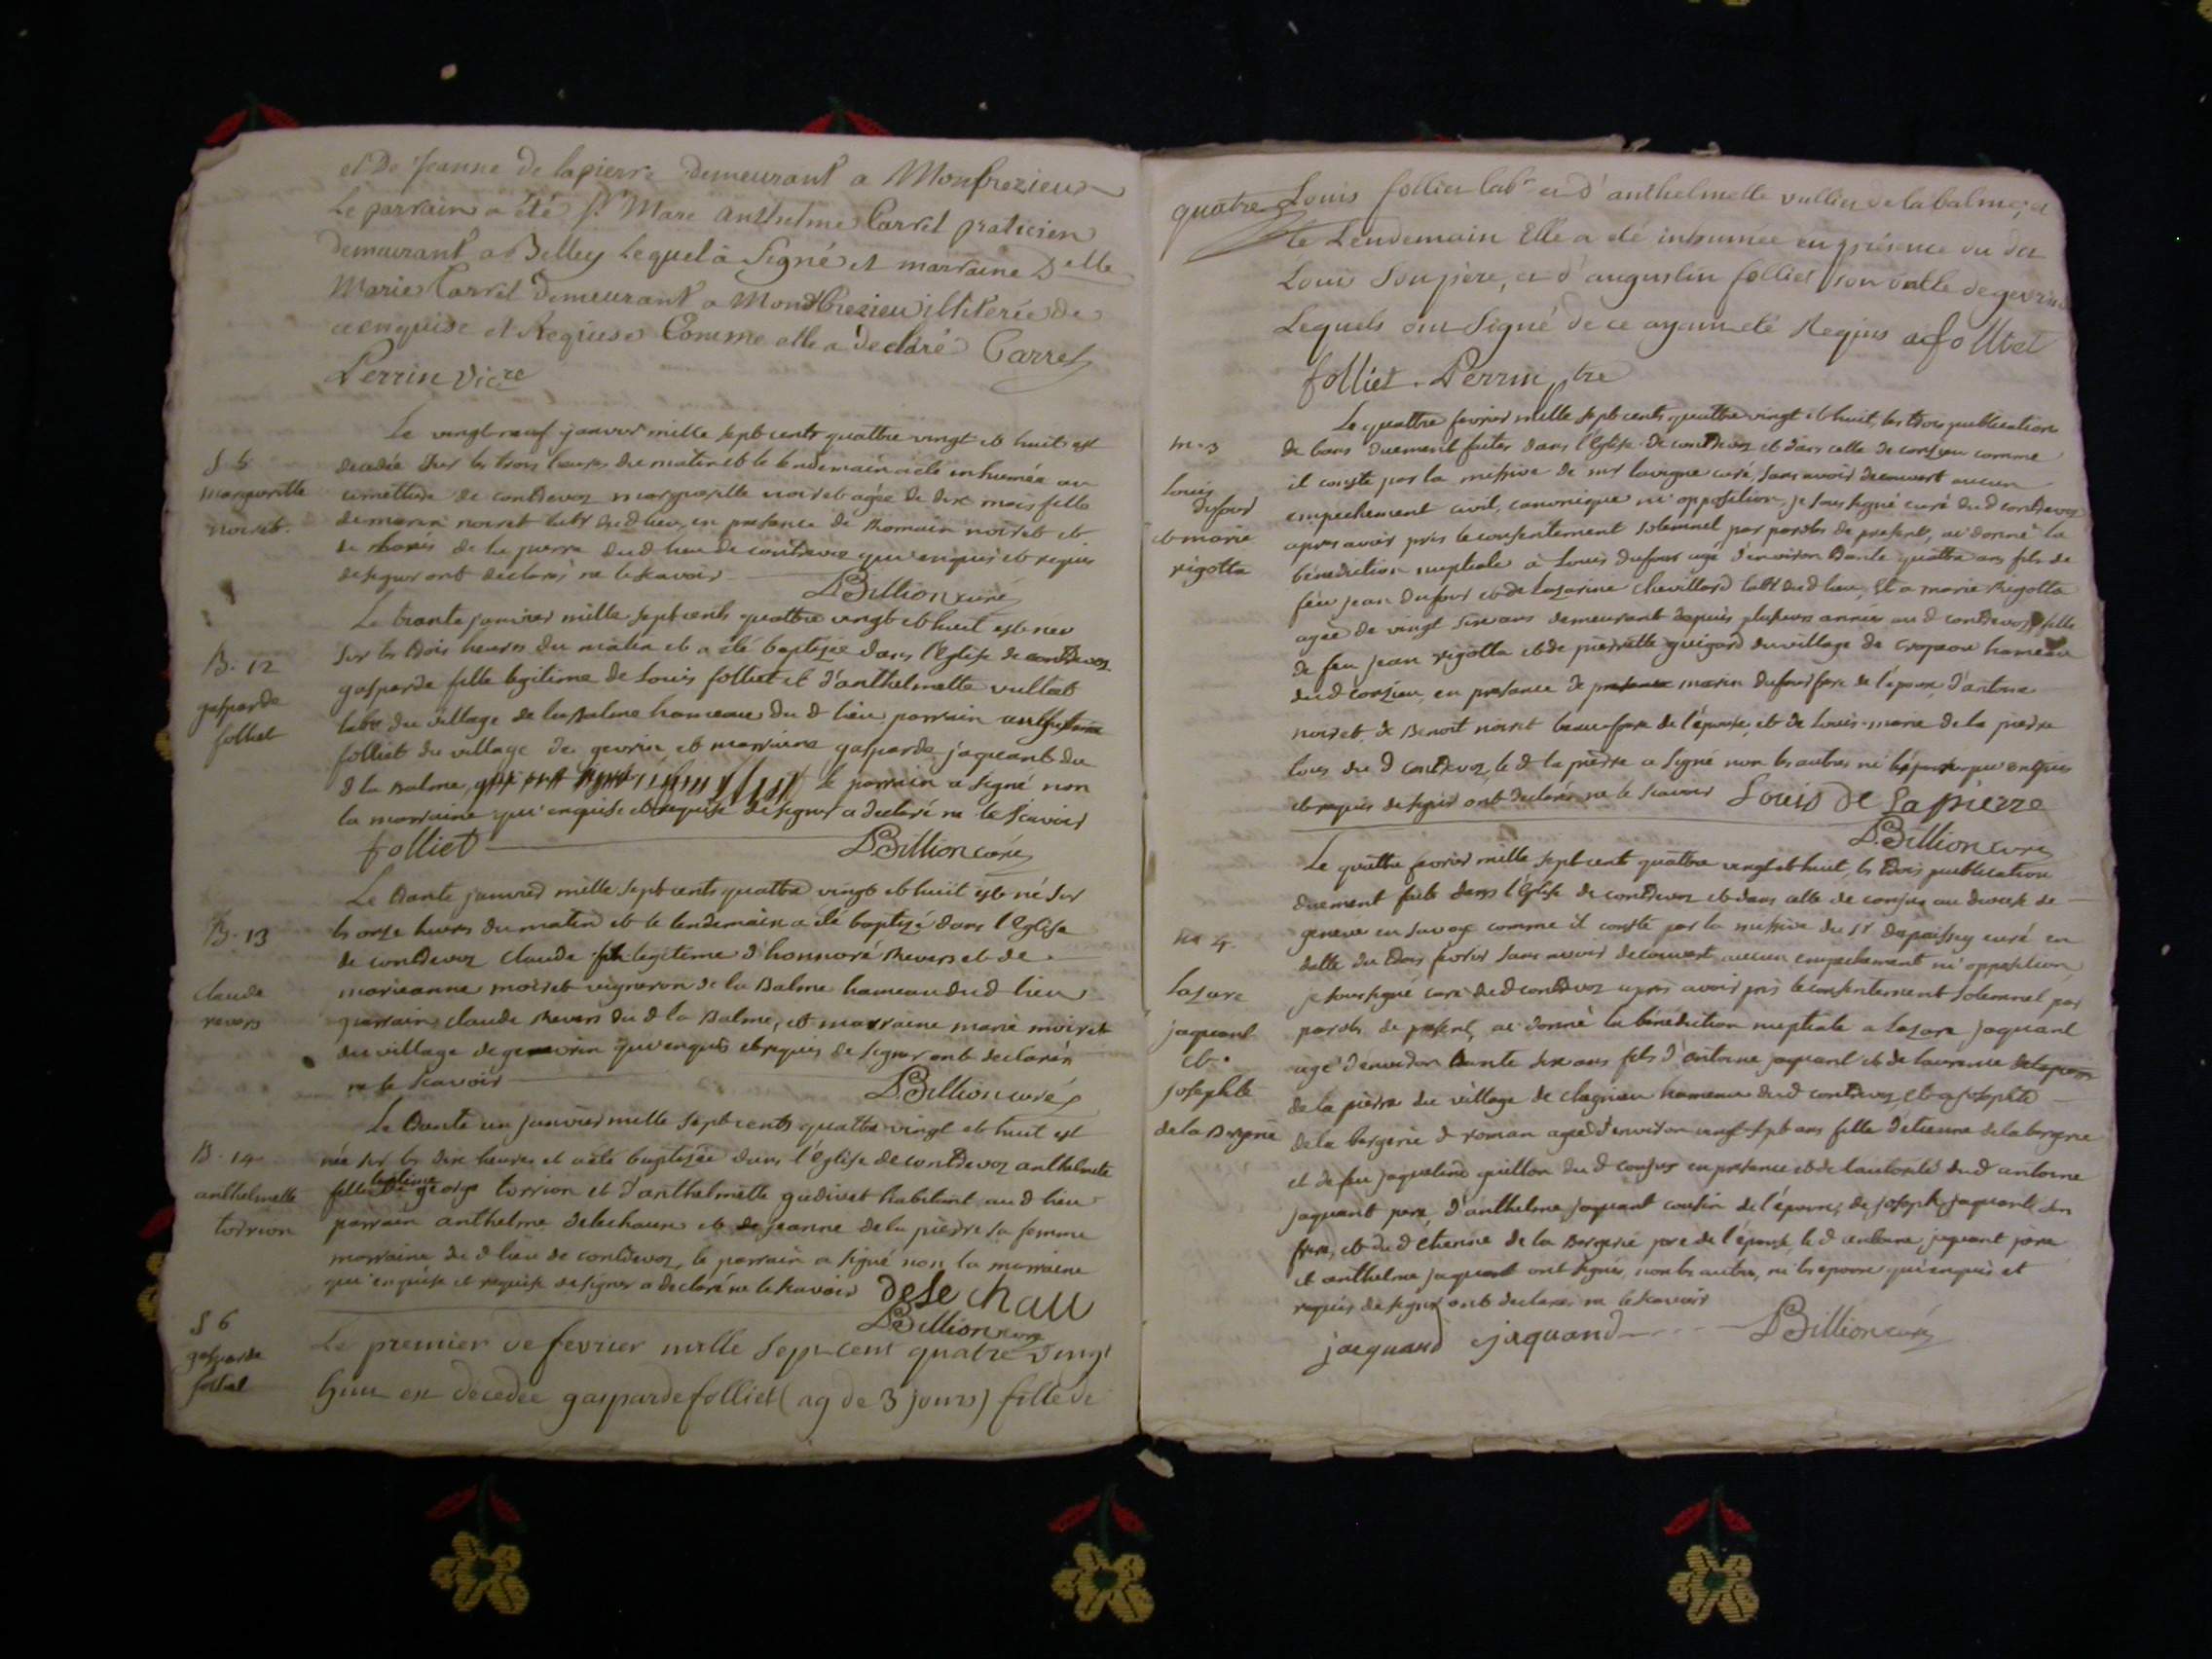 et De Jeanne de lapierre Demeurant a Monfrezieux
Le parrain a été Sr Marc Anthelme Carrel praticien
demeurant a Belley Lequel a Signé et marraine Delle
Marie Carrel Demeurant a Mondbrezieu illiterée de
ce enquise et Requise Comme elle a declaré Carrel
Perrin Vicre
Le vingt neuf janvier mille sept cents quattre vingt et huit est
S 5
margueritte
noiret.
decedée sur les trois heures du matin et le lendemain a été inhumée au
cimettiere de contrevoz margueritte noiret agée de dix mois fille
de marin noiret labr dud lieu, en presence de Romain noiret et
de de la pierre dud lieu de contrevoz qui enquis et requis
de signer ont declarés ne le scavoir
Billion curé
Le trante janvier mille sept cents quattre vingt et huit est nee
B. 12
gasparde
folliet
sur les trois heures du matin et a été baptizée dans l'Eglise de contrevoz
gasparde fille legitime de Louis folliet et d'anthelmette vulliet
labr du village de la Balme hameau du d lieu parrain
folliet du village de gevrin et marraine gasparde jaquant du
d la Balme, le parrain a signé non
la marraine qui enquise et requise de signer a declaré ne le scavoir
folliet
Billion curé
Le trante janvier mille sept cents quattre vingt et huit est né sur
B. 13
claude
revers
les onze heures du matin et le lendemain a été baptizé dans l'Eglise
de contrevoz claude fils legitime d'honnoré Revers et de
marieanne moiret vigneron de la Balme hameau dud lieu
parrain claude Revers du d la Balme, et marraine marie moiret
du village de gevrin qui enquis et requis de signer ont declarés
ne le scavoir
Billion curé
Le trante un janvier mille sept cents quattre vingt et huit est
B. 14
anthelmette
torrion
née sur les dix heures et a été baptisée dans l'église de contrevoz anthelmette
fille legitime de george torrion et d'anthelmette gudivet habitant au d lieu
parrain anthelme delechaux et de jeanne de la pierre sa femme
marraine du d lieu de contrevoz, le parrain a signé non la marraine
qui enquise et requise de signer a declaré ne le scavoir deLe chau
Billion curé
S 6
gasparde
folliet
Le premier de fevrier mille Sept cent quatre vingt
huit est decedée gasparde folliet (ag de 3 jours) fille de
quatre
Louis folliet labr et d'anthelmette vulliet de la balme, et
le Lendemain Elle a été inhumée en présence du dit
Louis Son père, et d'augustin folliet son oncle de gevrin
Lequels ont Signé de ce ayant été Requis a folliet
folliet. Perrin ptre
Le quattre fevrier mille sept cents quattre vingt et huit, les trois publications
m. 3
Louis
dufour
et marie
rigotta
de bans duement faites dans l'Eglise de contrevoz et dans celle de conzieu comme
il conste par la missive de mr lavigne curé, sans avoir decouvert aucun
empechement civil, canonique ni opposition, je soussigné curé dud contrevoz
apres avoir pris le consentement solemnel par parolles de present, ai donné la
bénediction nuptiale à Louis dufour agé d'environ trante quattre ans fils de
feu jean dufour et de Lazarine chevillard labr dud lieu, Et a marie Rigotta
agée de vingt six ans demeurant depuis plusieurs années au d contrevoz fille
de feu jean rigotta et de pierrette guigard du village de hameau
dud conzieu, en presence de marin dufour frere de l'epoux d'antoine
noiret, de Benoit noiret beau frere de l'épouse, et de Louis marie de la pierre
tous du d contrevoz, le d la pierre a signé non les autres ni l'epouse qui enquis
et requis de signer ont declarés ne le scavoir Louis De La pierre
Billion curé
Le quattre fevrier mille sept cent quattre vingt et huit, les trois publication
duement faite dans l'église de contrevoz et dans celle de au diocese de
m 4.
Lazare
jaquant
et
josephte
de la Bergerie
geneve en Savoye comme il conste par la missive du sr curé en
datte du trois fevrier sans avoir decouvert aucun empechement ni opposition
je soussigné curé dud contrevoz apres avoir pris le consentement solemnel par
parolles de present, ai donné la bénédiction nuptiale a Lazare jaquant
agé d'environ trante six ans fils d'antoine jaquant et de laurence
de la pierre du village de clagnieu hameau dud contrevoz, et a josephte
de la bergerie d roman agée d'environ vingt sept ans fille d'etienne de la bergerie
et de feu jaqueline guillon du d en presence et de l'autorité dud antoine
jaquant pere, d'anthelme jaquant cousin de l'époux, de joseph jaquant son
frere, et du d Etienne de la Bergerie pere de l'épouse, le d antoine jaquant pere
et anthelme jaquant ont signés, non les autres, ni les epoux qui enquis et
requis de signer ont declarés ne le scavoir
jacquand jaquand
Billion curé